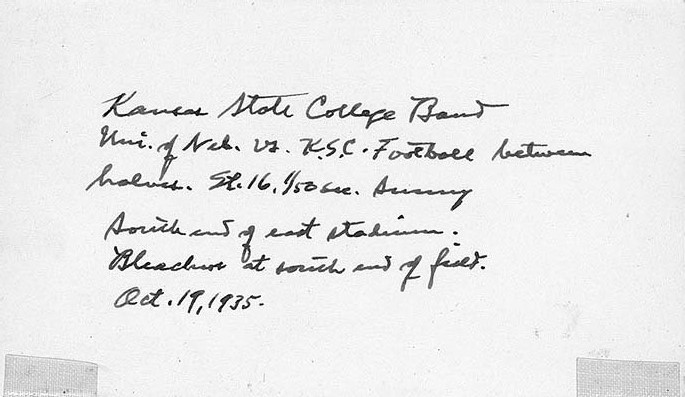 Kansas State College Band
Uni. of Neb. vs. K.S.C. Football between
halves. St. 16, 1/50 sec. Sunny
South end of east stadium.
Bleachers at south end of field.
Oct. 19, 1935.